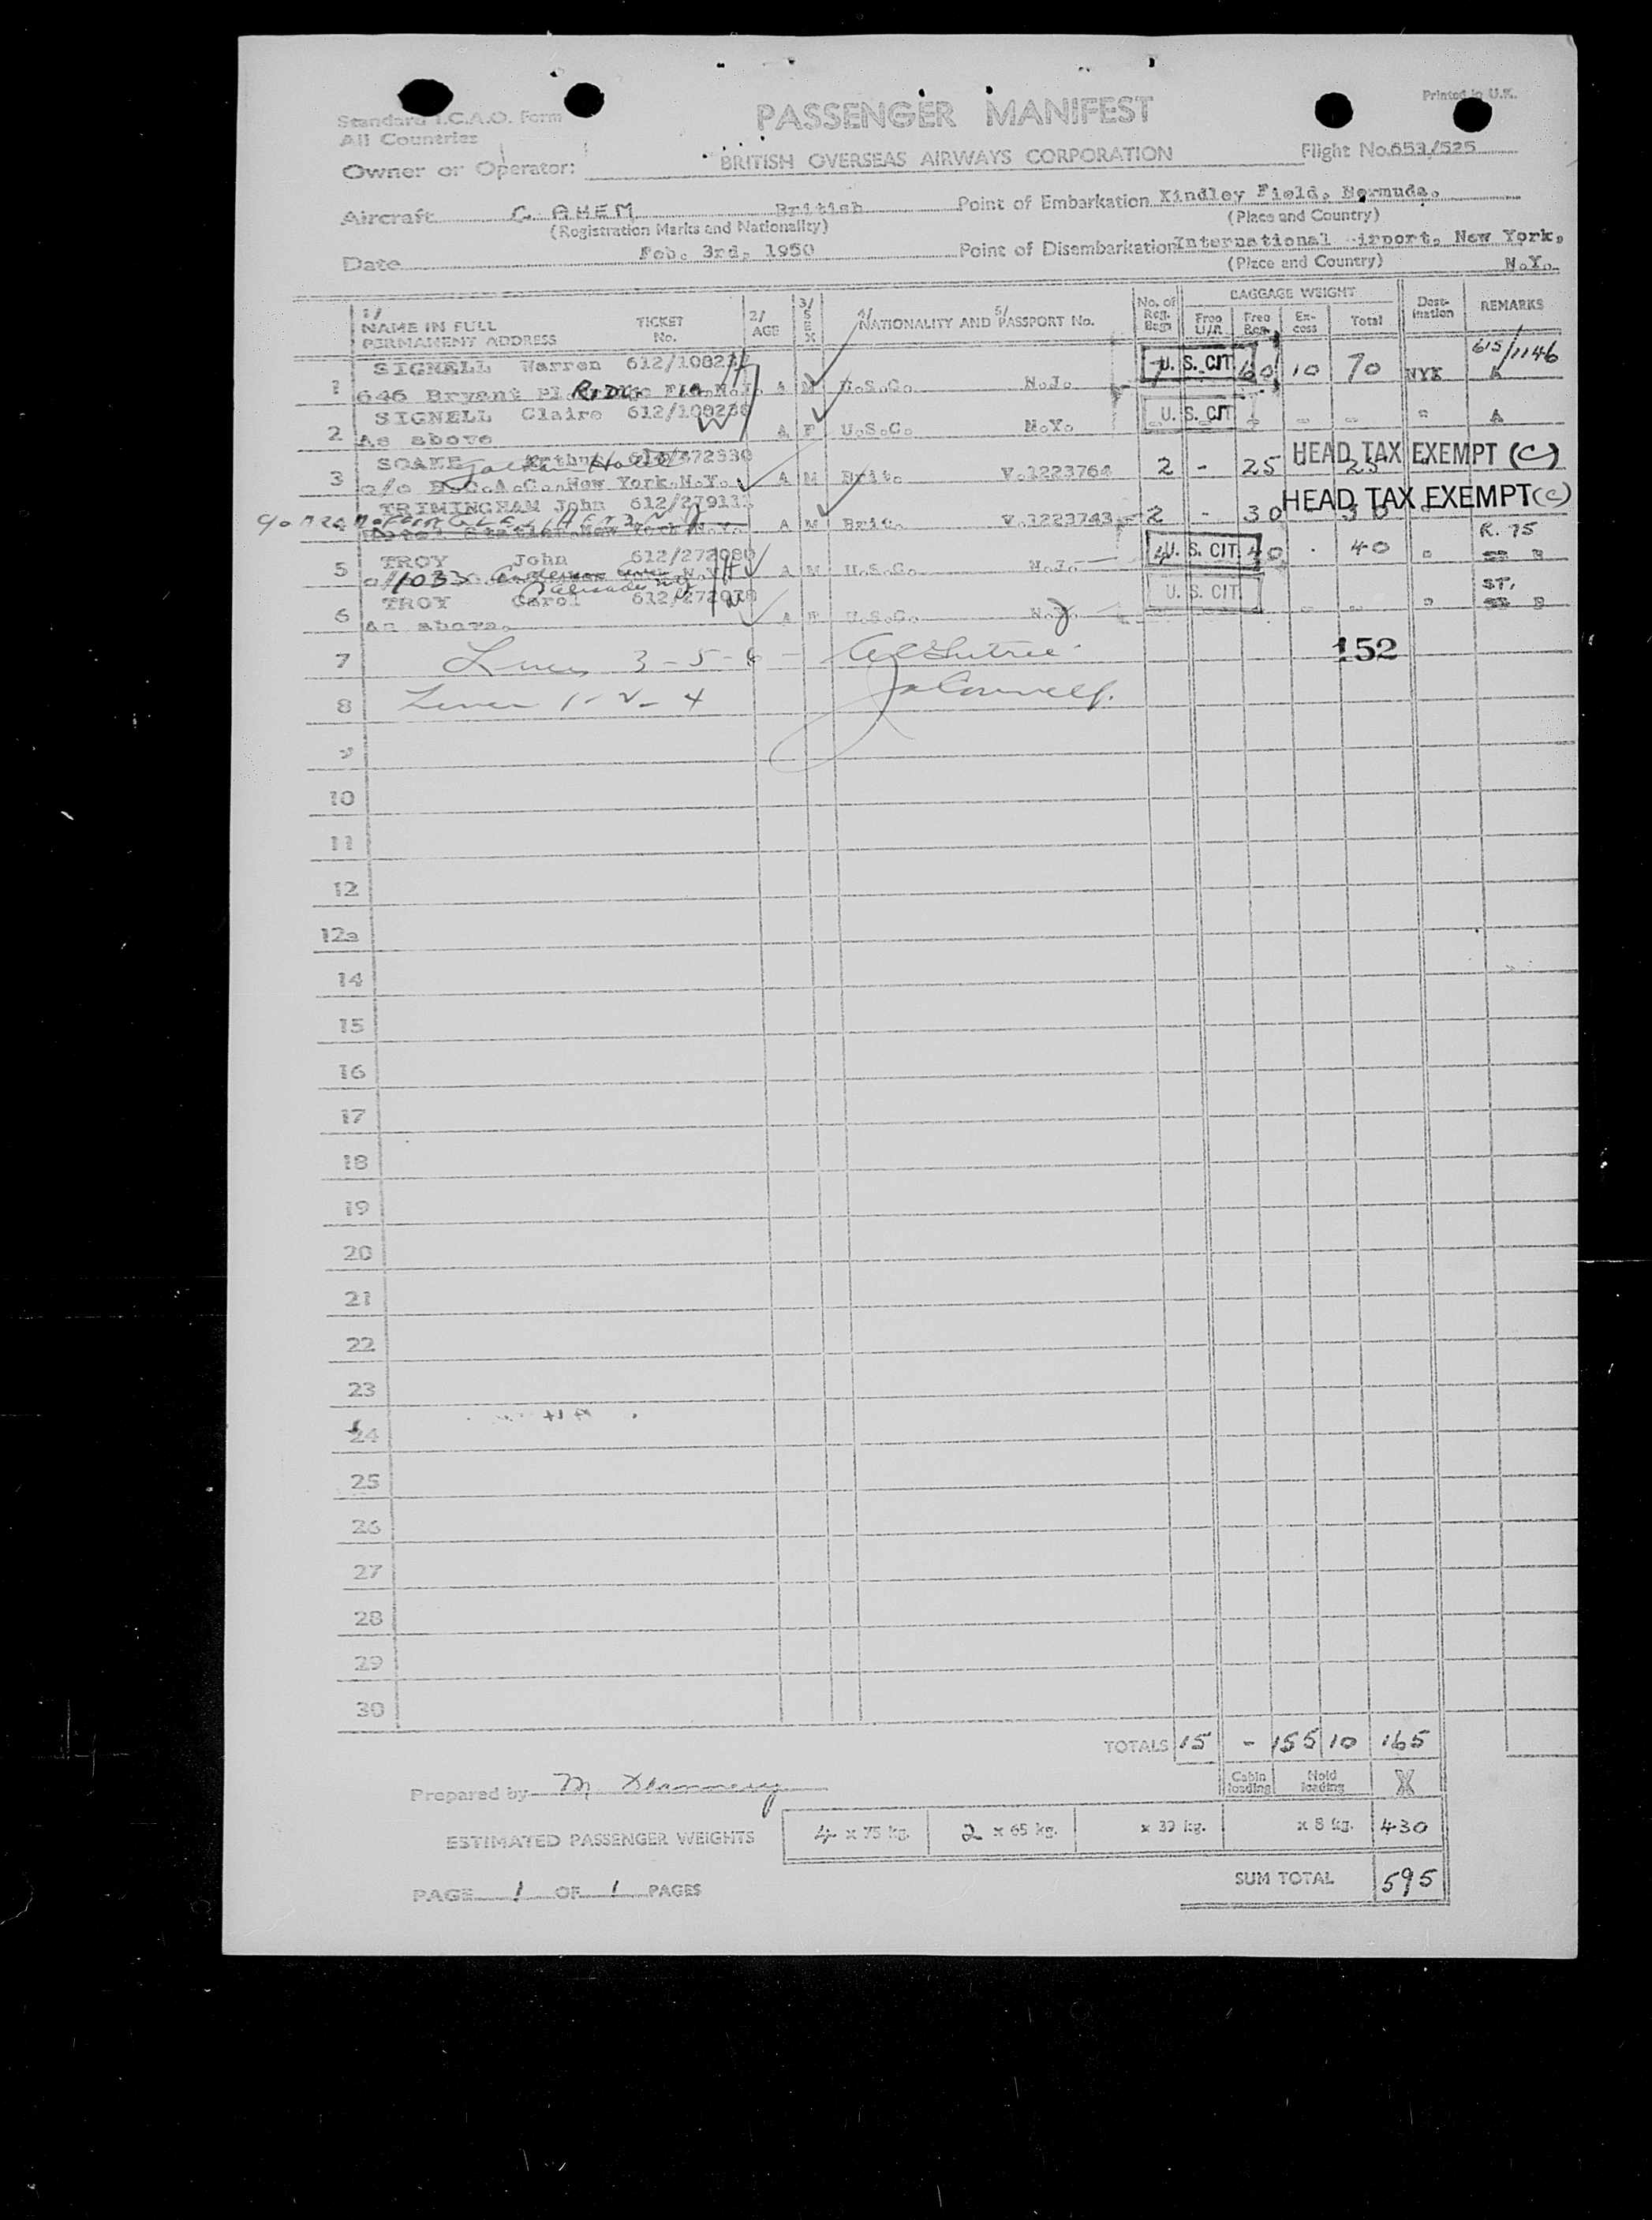 Standard I.C.A.O. Form
All Countries
PASSENGER MANIFEST
Printed in U.K.
Owner or Operator: BRITISH OVERSEAS AIRWAYS CORPORATION Flight No. 653/525
Aircraft G. AHEM British Point of Embarkation Kindley Field, Bermuda.
(Registration Marks and Nationality) (Place and Country)
Date Feb. 3rd, 1950 Point of Disembarkation International Airport, New York,
(Place and Country) N.Y.
1/ NAME IN FULL PERMANENT ADDRESS TICKET No. 2/ AGE 3/ SEX 4/ NATIONALITY AND 5/ PASSPORT No. No. of Reg. Bags BAGGAGE WEIGHT Free Reg. Ex-cess Total Dest-ination REMARKS
SIGNELL Warren 612/ U. S. CIT 615/1146
1 646 Bryant Pl. N.J. A M U.S.C. N.J. 60 10 70 NYK A
SIGNELL Claire 612/ U. S. CIT
2 As above A F U.S.C. N.Y. - - " A
Arthur HEAD TAX EXEMPT (C)
3 c/o B.O.A.C. New York N.Y. A M Brit. V.1223764 2 - 25 25 "
TRIMINGHAM John HEAD TAX EXEMPT (C)
4 Hotel Statler New York N.Y. A M Brit. V.1223743 2 - 30 30 "
TROY John 612/272080 U. S. CIT R. 75
5 1033 Anderson A M U.S.C. N.J. 4 40 . 40 "
Palisade N.J.
TROY Carol U. S. CIT ST.
6 As above. A F U.S.C. N.J. - - "
7 Lines 3-5-6 - 152
8 Lines 1-2-4
9
10
11
12
12a
14
15
16
17
18
19
20
21
22
23
24
25
26
27
28
29
30
TOTALS 15 - 155 10 165
Prepared by M Cabin loading Hold loading X
ESTIMATED PASSENGER WEIGHTS 4 x 75 kg. 2 x 65 kg. x 39 kg. x 8 kg. 430
PAGE 1 OF 1 PAGES SUM TOTAL 595